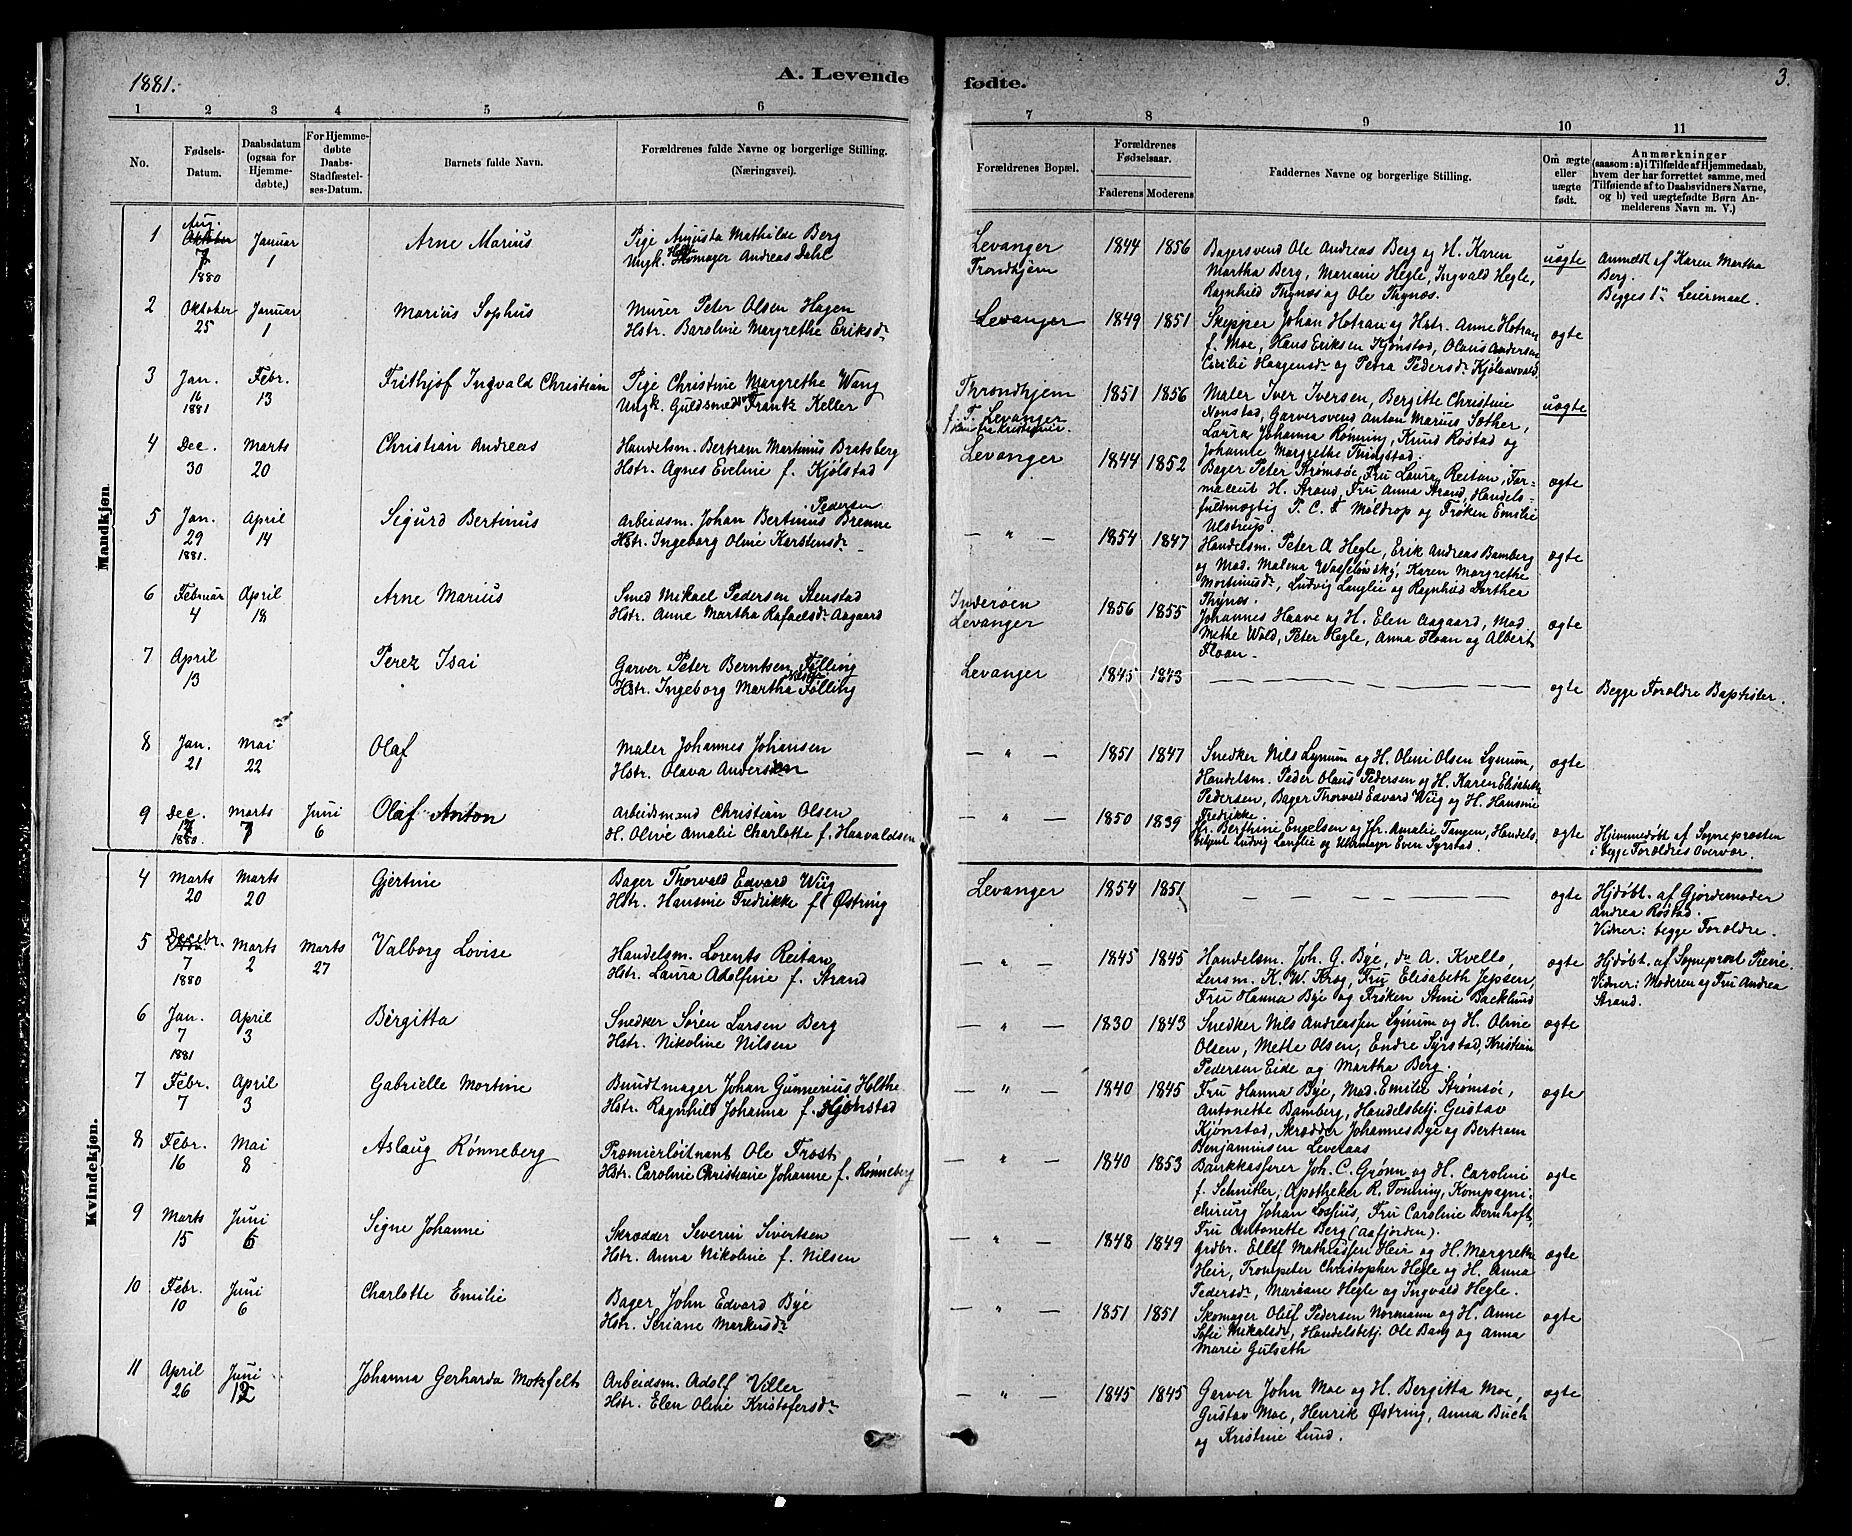 1881.
A. Levende
fødte.
3.
1 2 3 4 5 6 7 8 9 10 11
No.
Fødsels-
Datum.
Daabsdatum
(ogsaa for
Hjemme-
døbte,)
For Hjemme-
døbte
Daabs-
Stadfæstel-
ses-Datum.
Barnets fulde Navn.
Forældrenes fulde Navne og borgerlige Stilling.
(Næringsvei).
Forældrenes Bopæl.
Forældrenes
Fødselsaar.
Faderens Moderens
Faddernes Navne og borgerlige Stilling.
Om ægte
eller
uægte
født.
Anmærkninger
(saasom: a) i Tilfælde af Hjemmedaab,
hvem der har forrettet samme, med
Tilføiende af to Daabsvidners Navne,
og b) ved uægtefødte Børn An-
melderens Navn m. V.)
Mandkjøn
1
Aug.
Oktober
7
1880
Januar
1
Arne Marius
Pige Augusta Mathilde Berg
Ungk. Skomager Andreas Dahl
Levanger
Trondhjem
1844 1856
Bagersvend Ole Andreas Berg og H. Karen
Martha Berg, Mariane Hegle, Ingvald Hegle,
Ragnhild Thynæs og Ole Thynæs.
uægte
Anmeldt af Karen Martha
Berg.
Begges 1ste Leiermaal.
2
Oktober
25
Januar
1
Marius Sophus
Murer Peter Olsen Hagen
Hstr. Baroline Margrethe Eriksdr
Levanger
1849 1851
Skipper Johan Hotran og Hstr. Anne Hotran
f. Moe, Hans Eriksen Kjønstad, Olaus Andersen
Cecilie Haagensdr og Petra Pedersdr Kjølaasvald.
ægte
3
Jan.
16
1881
Febr.
13
Frithjof Ingvald Christian
Pige Christine Margrethe Wang
Ungk. Guldsmedsv. Frantz Keller
Throndhjem
f. T. Levanger
1851 1856
Maler Iver Iversen, Bergitte Christine
Nonstad, Garversvend Anton Marius Sæther,
Laura Johanna Rønning, Knud Røstad og
Johanne Margrethe Tingstad.
uægte
4
Dec.
30
Marts
20
Christian Andreas
Handelsm. Bertram Martinus Bratsberg
Hstr. Agnes Eveline f. Kjølstad
Levanger
1844 1852
Bager Peter Strømsøe, Fru Laura Reitan, Far-
maceut H. Strand, Fru Anna Strand, Handels-
fuldmægtig P. C. F. Møldrop og Frøken Emilie
Ulstrup.
ægte
5
Jan.
29
1881.
April
14
Sigurd Bertinus
Pedersen
Arbeidsm. Johan Bertinus Brenne
Hstr. Ingeborg Oline Karstensdr
— " —
1854 1847
Handelsm. Peter A Hegle, Erik Andreas Bamberg
og Mad. Malena Wasselowsky, Karen Margrethe
Mortinusdr, Ludvig Langlie og Ragnhild Dorthea
Thynæs.
ægte
6
Februar
4
April
18
Arne Marius
Smed Mikael Pedersen Stenstad
Hstr. Anne Martha Rafaelsdr Aagaard
Inderøen
Levanger
1856 1855
Johannes Haave og H. Elen Aagaard, Mad.
Methe Wold, Peter Hegle, Anna Floan og Albert
Floan.
ægte
7
April
13
Perez Isai
Garver Peter Berntsen Følling
Hstr. Ingeborg Martha Følling
Levanger
1845 1843
— — — — — —
ægte
Begge Forældre Baptister.
8
Jan.
21
Mai
22
Olaf
Maler Johannes Johansen
Hstr. Olava Andersen
— " —
1851 1847
Snedker Nils Lynum og H. Oline Olsen Lynum,
Handelsm. Peder Olaus Pedersen og H. Karen Elisabeth
Pedersen, Bager Thorvald Edvard Wiig og H. Hansine
Fredrikke.
ægte
9
Dec.
17
1880.
Marts
7
Juni
6
Olaf Anton
Arbeidsmand Christian Olsen
H. Olive Amalie Charlotte f. Haavaldsen
— " —
1850 1839
Jfr. Berthine Engelsen og Jfr. Amalie Tangen, Handels-
betjent Ludvig Langlie og Uhrmager Even Syrstad.
ægte
Hjemmedøbt af Sogneprosten
i begge Forældres Overvær.
Kvindekjøn.
4
Marts
20
Marts
20
Gjertine
Bager Thorvald Edvard Wiig
Hstr. Hansine Fredrikke f. Østring
Levanger
1854 1851
— — — — — —
ægte
Hjdøbt. af Gjordemoder
Andrea Røstad.
Vidner: begge Forældre.
5
Decbr.
7
1880
Marts
2
Marts
27
Valborg Lovise
Handelsm. Lorents Reitan
Hstr. Laura Adolfine f. Strand
— " —
1845 1845
Handelsm. Joh. G. Bye, do A. Kvello,
Lensm. K. W. Krog, Fru Elisabeth Jepsen,
Fru Hanna Bye og Frøken Stine Backlund
ægte
Hjdøbt. af Sogneprost Pene.
Vidner: Moderen og Fru Andrea
Strand.
6
Jan.
7
1881
April
3
Bergitta
Snedker Søren Larsen Berg
Hstr. Nikoline Nilsen
— " —
1830 1843
Snedker Nils Andreassen Lynum og H. Oline
Olsen, Mette Olsen, Endre Syrstad, Kristian
Pedersen Eide og Martha Berg.
ægte
7
Febr.
7
April
3
Gabrielle Mortine
Bundtmager Johan Gunnerius Holthe
Hstr. Ragnhild Johanna f. Hjønstad
— " —
1840 1845
Fru Hanna Bye, Mad. Emilie Strømsøe,
Antonette Bamberg, Handelsbetj. Gustav
Kjønstad, Skrædder Johannes Bye og Bertram
Benjaminsen Leveraas
ægte
8
Febr.
16
Mai
8
Aslaug Rønneberg
Premierløitnant Ole Frost
Hstr. Caroline Christiane Johanne f. Rønneberg
— " —
1840 1853
Bankkasserer Joh. C. Grønn og H. Caroline
f. Schnitler, Apotheker R. Tønning, Kompagni-
chirurg Johan Lossius, Fru Caroline Bernhoft,
Fru Antonette Berg (Aafjorden).
ægte
9
Marts
15
Juni
6
Signe Johanne
Skrædder Severin Sivertsen
Hstr. Anna Nikoline f. Nilsen
— " —
1848 1849
Grdbr. Ellef Mathiassen Heir og H. Margrethe
Heir, Trompeter Christopher Hegle og H. Anna
Pedersdr, Mariane Hegle og Ingvald Hegle.
ægte
10
Febr.
10
Juni
6
Charlotte Emilie
Bager John Edvard Bye
Hstr. Seriane Markusdr
— " —
1851 1851
Skomager Oluf Pedersen Normann og H. Anne
Sofie Mikalsdr, Handelsbetj. Ole Bang og Anna
Marie Gulseth
ægte
11
April
26
Juni
12
Johanna Gerharda Motzfelt
Arbeidsm. Adolf Viller
Hstr. Elen Oline Kristofersdr
— " —
1845 1845
Garver John Moe og H. Bergitta Moe,
Gustav Moe, Henrik Østring, Anna Buch
og Kristine Lund.
ægte